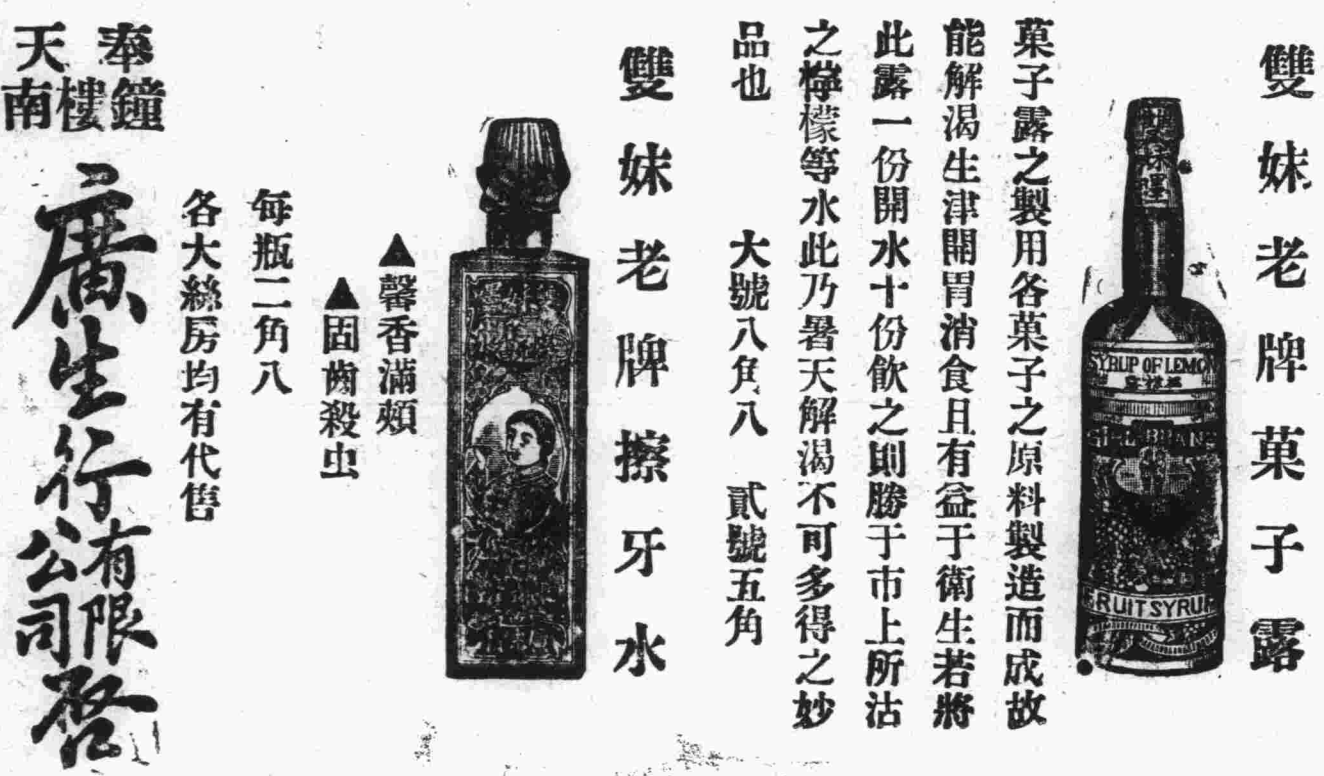 雙妹老牌菓子露
雙妹嚜
SYRUP OF LEMON
FRUIT SYRUP
菓子露之製用各菓子之原料製造而成故
能解渴生津開胃消食且有益于衛生若將
此露一份開水十份飲之則勝于市上所沽
之檸檬等水此乃暑天解渴不可多得之妙
品也 大號八角八 貳號五角
雙妹老牌擦牙水
▲馨香滿頰
▲固齒殺虫
每瓶二角八
各大絲房均有代售
奉天
鐘樓南
廣生行有限公司啓